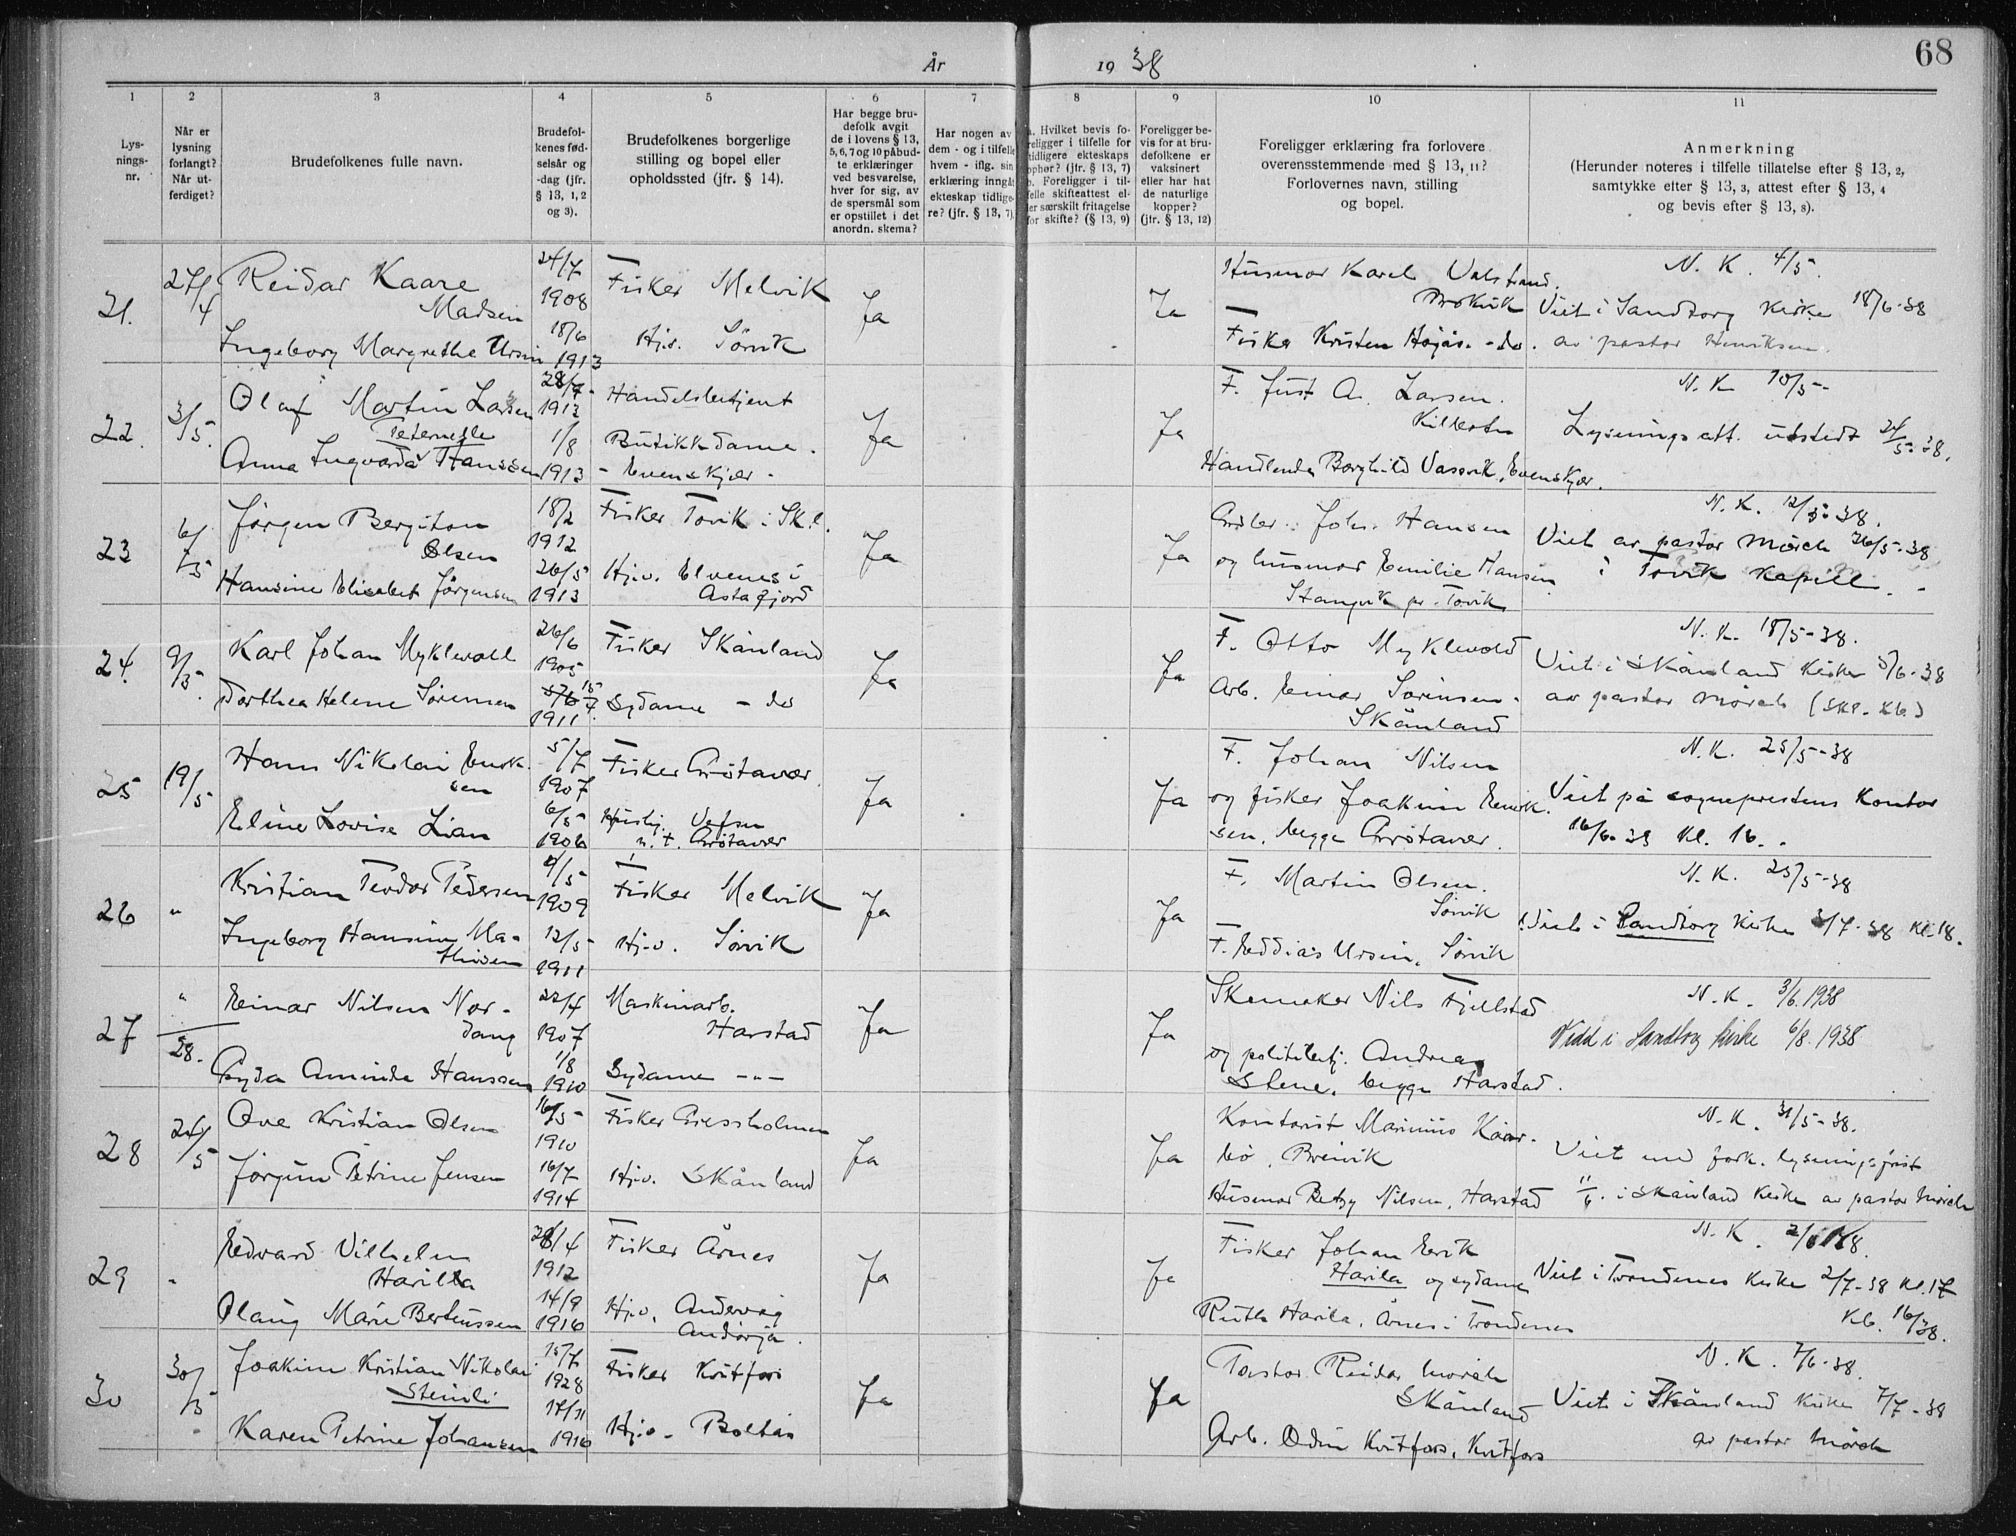 År 1938
68
1
2
3
4
5
6
7
8
9
10
11
Lys-
nings-
nr.
Når er
lysning
forlangt?
Når ut-
ferdiget?
Brudefolkenes fulle navn.
Brudefol-
kenes fød-
selsår og
-dag (jfr.
§ 13, 1, 2
og 3).
Brudefolkenes borgerlige
stilling og bopel eller
opholdssted (jfr. § 14).
Har begge bru-
defolk avgit
de i lovens § 13,
5, 6, 7 og 10 påbud-
te erklæringer
ved besvarelse,
hver for sig, av
de spørsmål som
er opstillet i det
anordn. skema?
Har nogen av
dem - og i tilfelle
hvem - iflg. sin
erklæring inngåt
ekteskap tidlige-
re? (jfr. § 13, 7)
a. Hvilket bevis fo-
religger i tilfelle for
tidligere ekteskaps
ophør? (jfr. § 13, 7)
b. Foreligger i til-
felle skifteattest el-
ler særskilt fritagelse
for skifte? (§ 13, 9)
Foreligger be-
vis for at bru-
defolkene er
vaksinert
eller har hat
de naturlige
kopper?
(jfr. § 13, 12)
Foreligger erklæring fra forlovere
overensstemmende med § 13, 11?
Forlovernes navn, stilling
og bopel.
Anmerkning
(Herunder noteres i tilfelle tillatelse efter § 13, 2,
samtykke efter § 13, 3, attest efter § 13, 4
og bevis efter § 13, 8).
21. 27/4 Reidar Kaare 24/7 Fisker Melvik Ja Ja Husmor Karel N. K. 4/5.
Madsen 1908 Viet i Sandtorg kirke 18/6-38
Ingeborg Margrethe Ursin 18/6 1913 Hj.v. Sørvik Fisker Kristen Højås - do. av pastor Henriksen.
22. 3/5. Olaf Martin Larsen 28/7 1912 Handelsbetjent Ja Ja F. Just A. Larsen. N. K. 10/5-
Peternelle 1/8 Butikkdame. Lysningsatt. utstedt 24/5-38.
Anna Ingvarda Hanssen 1913 - Evenskjær - Handlende Borghild Vassvik, Evenskjær.
23 6/5 Jørgen Bergiton 18/2 Fisker Tovik i Sk.l. Ja Ja Joh. Hansen N. K. 12/5-38.
Olsen 1912 og husmor Emilie Hansen Viet av pastor Mørch 26/5-38
Hansine Elisabet Jørgensen 26/5 1913 Hj.v. Elvenes i Astafjord Stangvik pr. Tovik i Tovik kapell.
24. 9/5. Karl Johan Myklevoll 26/6 1905 Fisker Skånland Ja Ja F. Otto Myklevold N. K. 18/5-38.
Viet i Skånland kirke 5/6-38
Dorthea Helene Sørensen 15/7 1911 Sydame - do Arb. Einar Sørensen. Skånland av pastor Mørch (Skl. kb.)
25 19/5 Hans Nikolai Enok- 5/7 Fisker Grøtavær Ja Ja F. Johan Nilsen N. K. 25/5-38
sen 1907 og fisker Joakim Enok- Viet på sogneprestens kontor
Eline Lovise Lian 6/5 1906 Hushj. Vefsn n.t. Grøtavær sen, begge Grøtavær. 16/6-38 kl. 16.
26 " Kristian Teodor Pedersen 1909 Fisker Melvik Ja Ja F. Martin Olsen. Sørvik N. K. 25/5-38
Viet i Sandtorg kirke 3/7-38 kl. 18.
Ingeborg Hansine Ma-
thisen 12/5 1911 Hj.v. Sørvik F. Eddias Ursin, Sørvik
27 " 28. Einar Nilsen Nor- 22/4 Maskinarb. Ja Ja Skomaker Nils Fjellstad N. K. 3/6.1938
dang 1907 Harstad Vidd i Sandtorg kirke 6/8.1938
Gyda Aminda Hanssen 1/8 1910 Sydame -"- og politibetj. Andreas
Stene, begge Harstad.
28 24/5 Ove Kristian Olsen 16/5 1910 Fisker Gressholmen Ja Ja Kontorist Marinius Kaar- N. K. 31/5-38.
bø, Breivik Viet med fork. lysningsfrist
Jørgine Petrine Jensen 16/7 1914 Hj.v. Skånland Husmor Betzy Nilsen, Harstad 11/6. i Skånland kirke av pastor Mørch
29 " Edvard Vilhelm 28/4 Fisker Årnes Ja Ja Fisker Johan Erik N. K.
Harilla 1912 Harila og sydame Viet i Trondenes kirke 2/7-38 kl. 17
Olaug Marie Berteussen 14/9 1916 Hj.v. Andervåg Andørja. Ruth Harila, Årnes i Trondenes kb. 16/38.
30 30/5 Joakim Kristian Nikolai 15/7 Fisker Kvitfors Ja Ja Pastor Reidar Mørch N. K. 7/6-38.
Steinli 1928 Skånland Viet i Skånland kirke 7/7-38
Karen Petrine Johansen 17/11 1916 Hj.v. Boltås Arb. Odin Kvitfors, Kvitfors av pastor Mørch